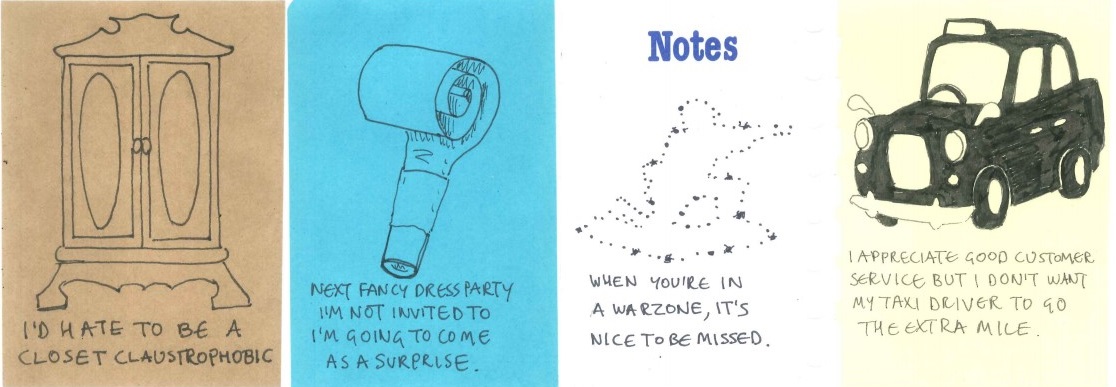 I'D HATE TO BE A
CLOSET CLAUSTROPHOBIC
NEXT FANCY DRESS PARTY
I'M NOT INVITED TO
I'M GOING TO COME
AS A SURPRISE.
Notes
WHEN YOU'RE IN
A WARZONE, IT'S
NICE TO BE MISSED.
I APPRECIATE GOOD CUSTOMER
SERVICE BUT I DON'T WANT
MY TAXI DRIVER TO GO
THE EXTRA MILE.